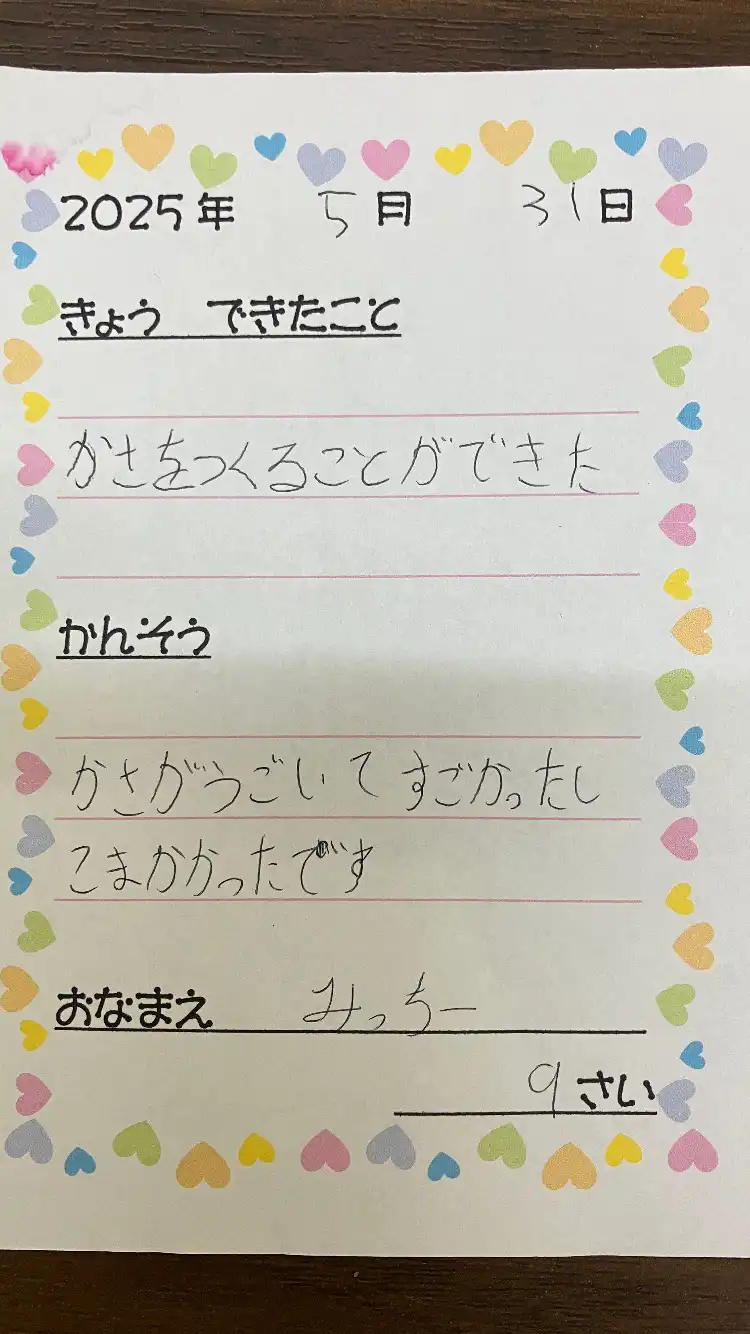 2025年 5月 31日
きょう できたこと
かさをつくることができた
かんそう
かさがうごいてすごかったし
こまかかったです
おなまえ みっちー
9さい